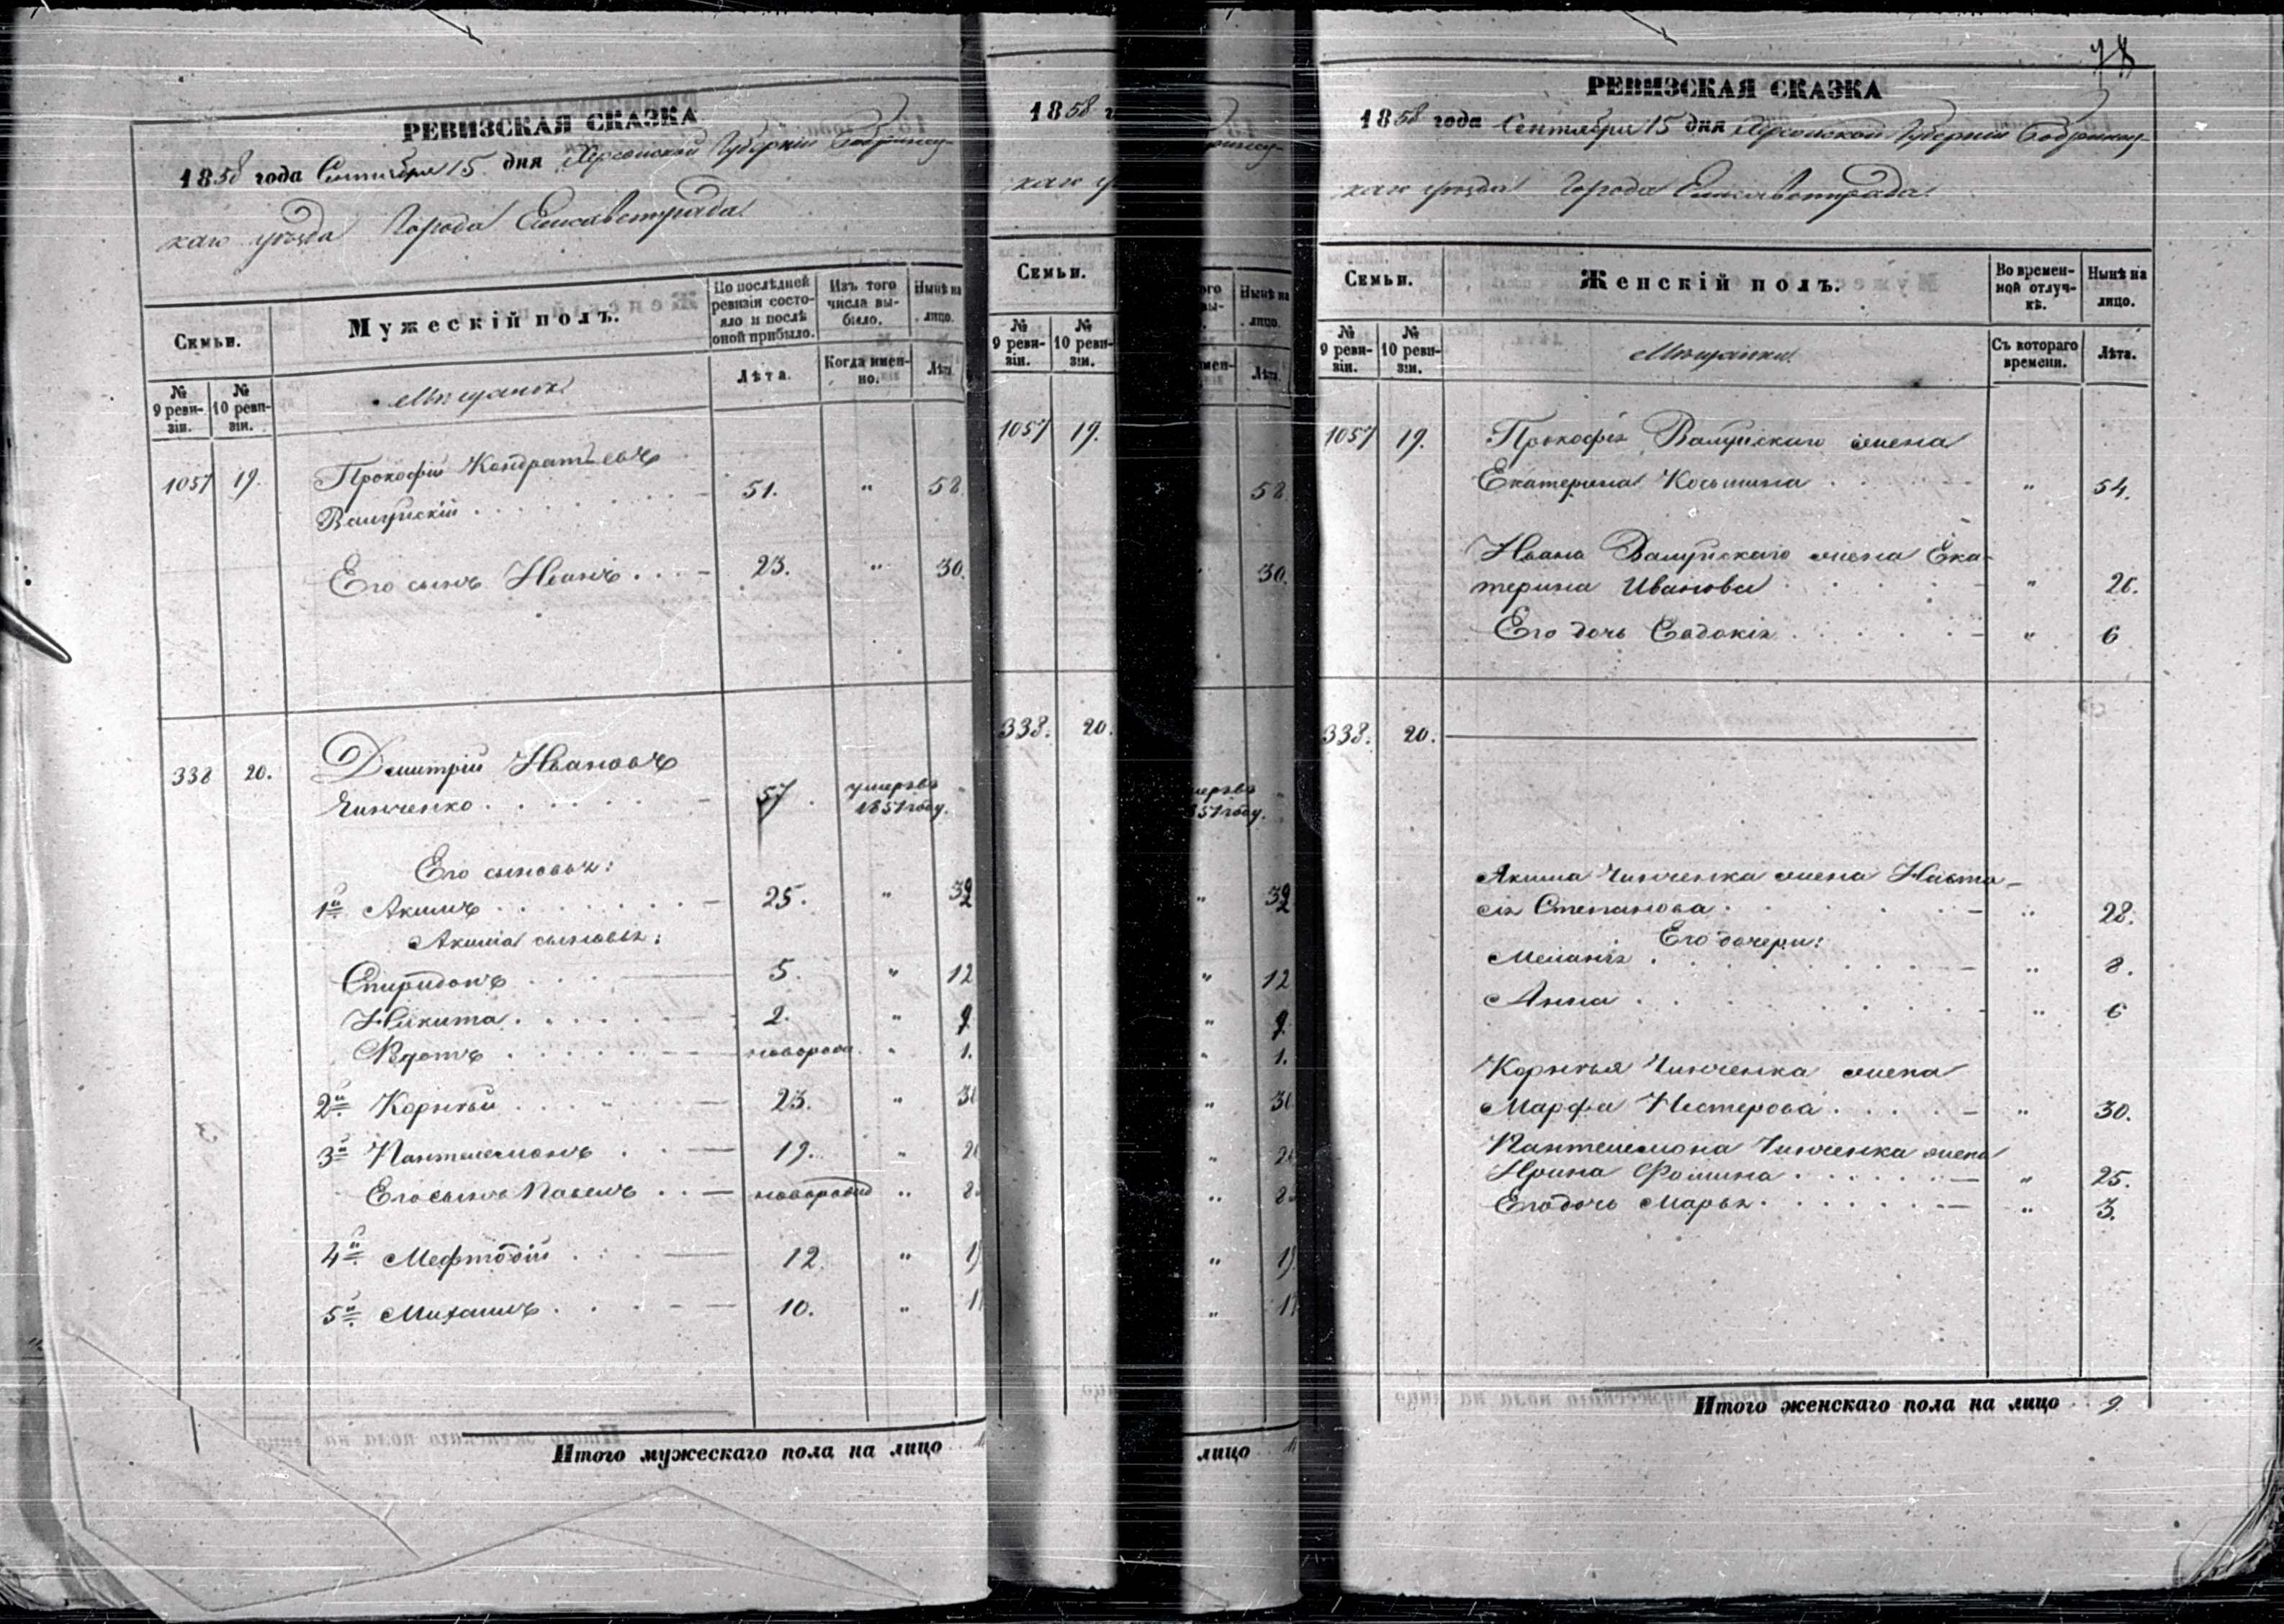 РЕВИЗСКАЯ СКАЗКА
1858 года Сентября 15 дня Херсонской Губерніи Бобринец-
каго уѣзда Города Елисаветграда
Семьи.
Мужескій полъ.
По послѣдней ревизіи состояло и послѣ оной прибыло.
Изъ того числа выбыло.
Нынѣ на лицо.
№ 9 ревизіи.
№ 10 ревизіи.
Мѣщанъ
Лѣта.
Когда именно.
Лѣта
1057 19. Прокофій Кондратьевъ
Валуйскій 51. " 58
Его сынъ Иванъ 23. " 30.
338 20. Дмитрій Ивановъ
Чинченко 57. умеръ въ 1851 году.
Его сыновья:
1й Акимъ 25. " 32
Акима сыновья:
Спиридонъ 5. " 12
Никита 2. " 9
Ѳедотъ новорожд. " 1.
2й Корнѣй 23. " 30
3й Пантелемонъ 19. " 26
Его сынъ Павелъ новорожд " 8.
4й Мефтодій 12. " 19
5й Михаилъ 10. " 17
Итого мужескаго пола на лицо
1858 г
каго у
Семьи.
№ 9 ревизіи.
№ 10 ревизіи.
1057 19.
338. 20.
Нынѣ на лицо.
Лѣта
58
30.
1851 году.
" 32
" 12
" 9
" 1.
" 30
" 26
" 8.
" 19
" 17
лицо
78
РЕВИЗСКАЯ СКАЗКА
1858 года Сентября 15 дня Херсонской Губерніи Бобринец-
каго уѣзда Города Елисаветграда
Семьи.
Женскій полъ.
Во временной отлучкѣ.
Нынѣ на лицо.
№ 9 ревизіи.
№ 10 ревизіи.
Мѣщанки
Съ котораго времени.
Лѣта.
1057 19. Прокофія Валуйскаго жена
Екатерина Косьмина " 54.
Ивана Валуйскаго жена Ека-
терина Иванова " 26.
Его дочь Евдокія " 6
338. 20.
Акима Чинченка жена Наста-
сія Степанова " 28.
Его дочери:
Меланія " 8.
Анна " 6
Корнѣя Чинченка жена
Марфа Нестерова " 30.
Пантелемона Чинченка жена
Ирина Фомина " 25.
Его дочь Марья " 3.
Итого женскаго пола на лицо 9